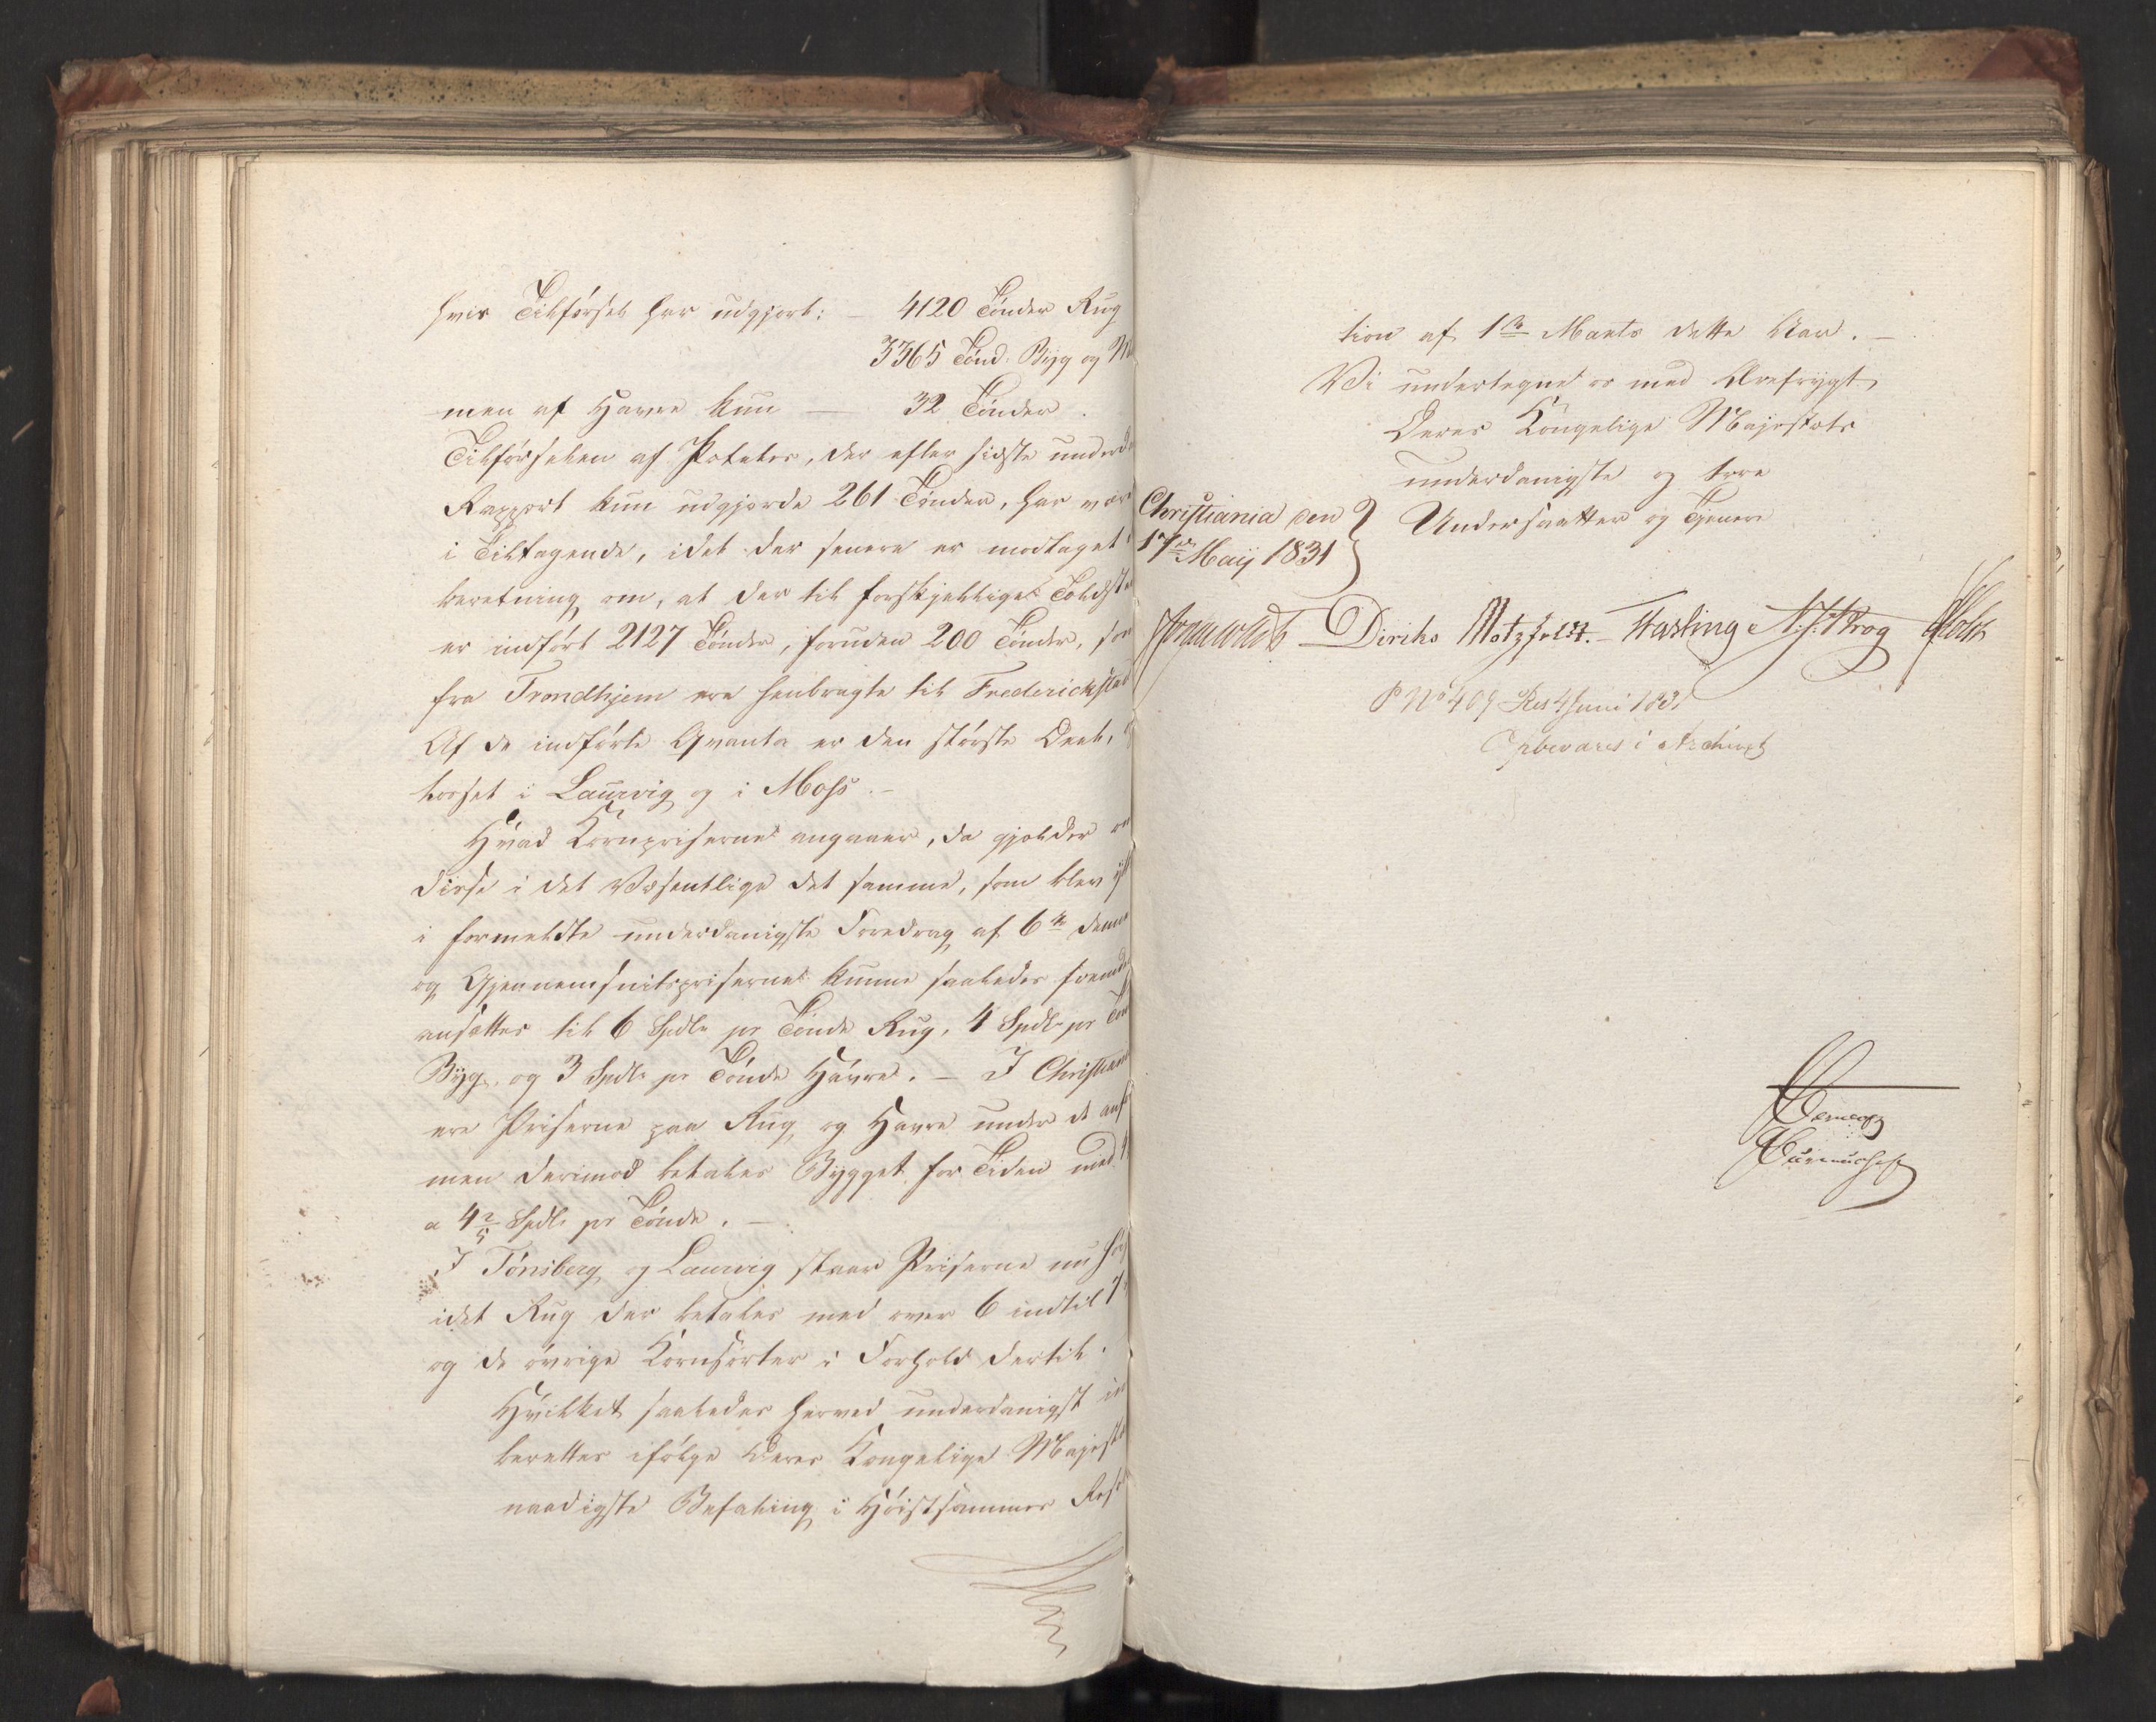 hvis Tilførsel har udgjort: – 4120 Tønder Rug
3365 Tønd. Byg og
men af Havre kun — 32 Tønder.
Tilførselen af Poteter, der efter sidste underd
Rapport kun udgjorde 261 Tønder, har vær
i Tiltagende, idet der senere er modtaget
beretning om, at der til forskjellige Toldste
er indført 2127 Tønder, foruden 200 Tønder, som
fra Trondhjem ere henbragte til Frederickstad
Af de indførte Qvanta er den største Deel,
losset i Laurvig og i Moss. –
Hvad Kornpriserne angaaer, da gjelder om
disse i det Væsentlige det samme, som blev
i formeldte underdanigste Foredrag af 6te denne
og Gjennemsnitspriserne kunne saaledes fremd
ansættes til 6 Spdlr pr Tønde Rug, 4 Spdlr pr Tønd
Byg, og 3 Spdlr pr Tønde Havre. – I Christian
ere Priserne paa Rug og Havre under det anf
men derimod betales Bygget for Tiden med 4
a 4 2/5 Spdlr pr Tønde. –
I Tønsberg og Laurvig staae Priserne nu høi
idet Rug der betales med over 6 indtil 7
og de øvrige Kornsorter i Forhold dertil.
Hvilket saaledes herved underdanigst ind
berettes ifølge Deres Kongelige Majestæ
naadigste Befaling i Høistsammes Reso
tion af 1ste Marts dette Aar. –
Vi undertegne os med Ærefrygt
Deres Kongelige Majestæts
underdanigste og troe
Christiania den 17de Maij 1831
Undersaatter og Tjenere
Diriks Motzfeldt. – Fasting N. J. Krog Holst
P No 409 Res 4 Juni 1831
Opbevares i Archivet